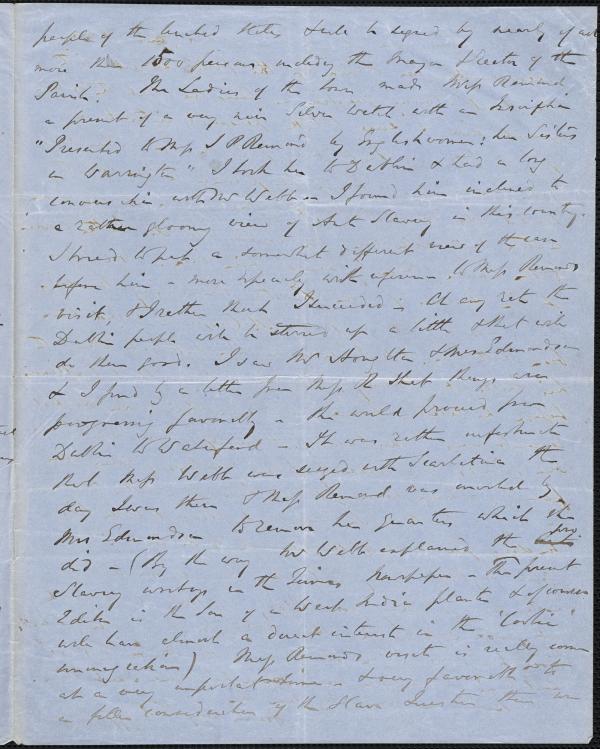 people of the United States & will be signed by nearly if not
more than 1500 persons including the Mayor & Rector of the
Parish. The Ladies of the town made Miss Remond
a present of a very nice Silver Watch with an Inscription
"Presented to Miss S P Remond by Englishwomen, her Sisters
in Warrington" I took her to Dublin & had a long
conversation with Mr Webb - I found him inclined to
a rather gloomy view of Anti Slavery in this country.
I tried to put a somewhat different view of the case
before him - more especially with reference to Miss Remonds
visit & I rather think I succeeded - At any rate the
Dublin people will be stirred up a little & that will
do them good. I saw Mr Haughton & Mrs Edmundson
& I find by a letter from Miss R that things are
progressing favorably - She would proceed from
Dublin to Waterford - It was rather unfortunate
that Miss Webb was seized with Scarlatina the
day I was there & Miss Remond was invited by
Mrs Edmundson to remove her quarters which she
did - (By the way Mr Webb explained the pro
Slavery writings in the Times Newspaper - The present
Editor is the Son of a West India planter & of course
will have almost a direct interest in the 'Coolie'
immigration) Miss Remonds visit is really com
at a very important time - & very favorable with
a fuller consideration of the Slave Question than